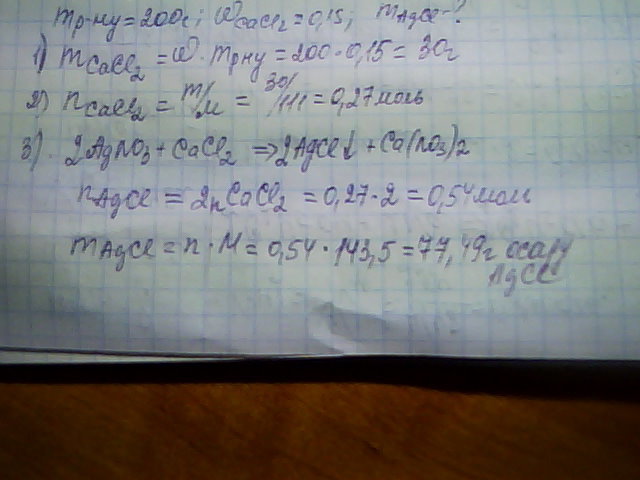 mр-ну = 200г; ωCaCl2 = 0,15; mAgCl - ?
1) mCaCl2 = ω · mрну = 200 · 0,15 = 30г
2) nCaCl2 = m/M = 30/111 = 0,27 моль
3) 2AgNO3 + CaCl2 ⇒ 2AgCl↓ + Ca(NO3)2
nAgCl = 2nCaCl2 = 0,27 · 2 = 0,54 моль
mAgCl = n · M = 0,54 · 143,5 = 77,49г осаду
AgCl